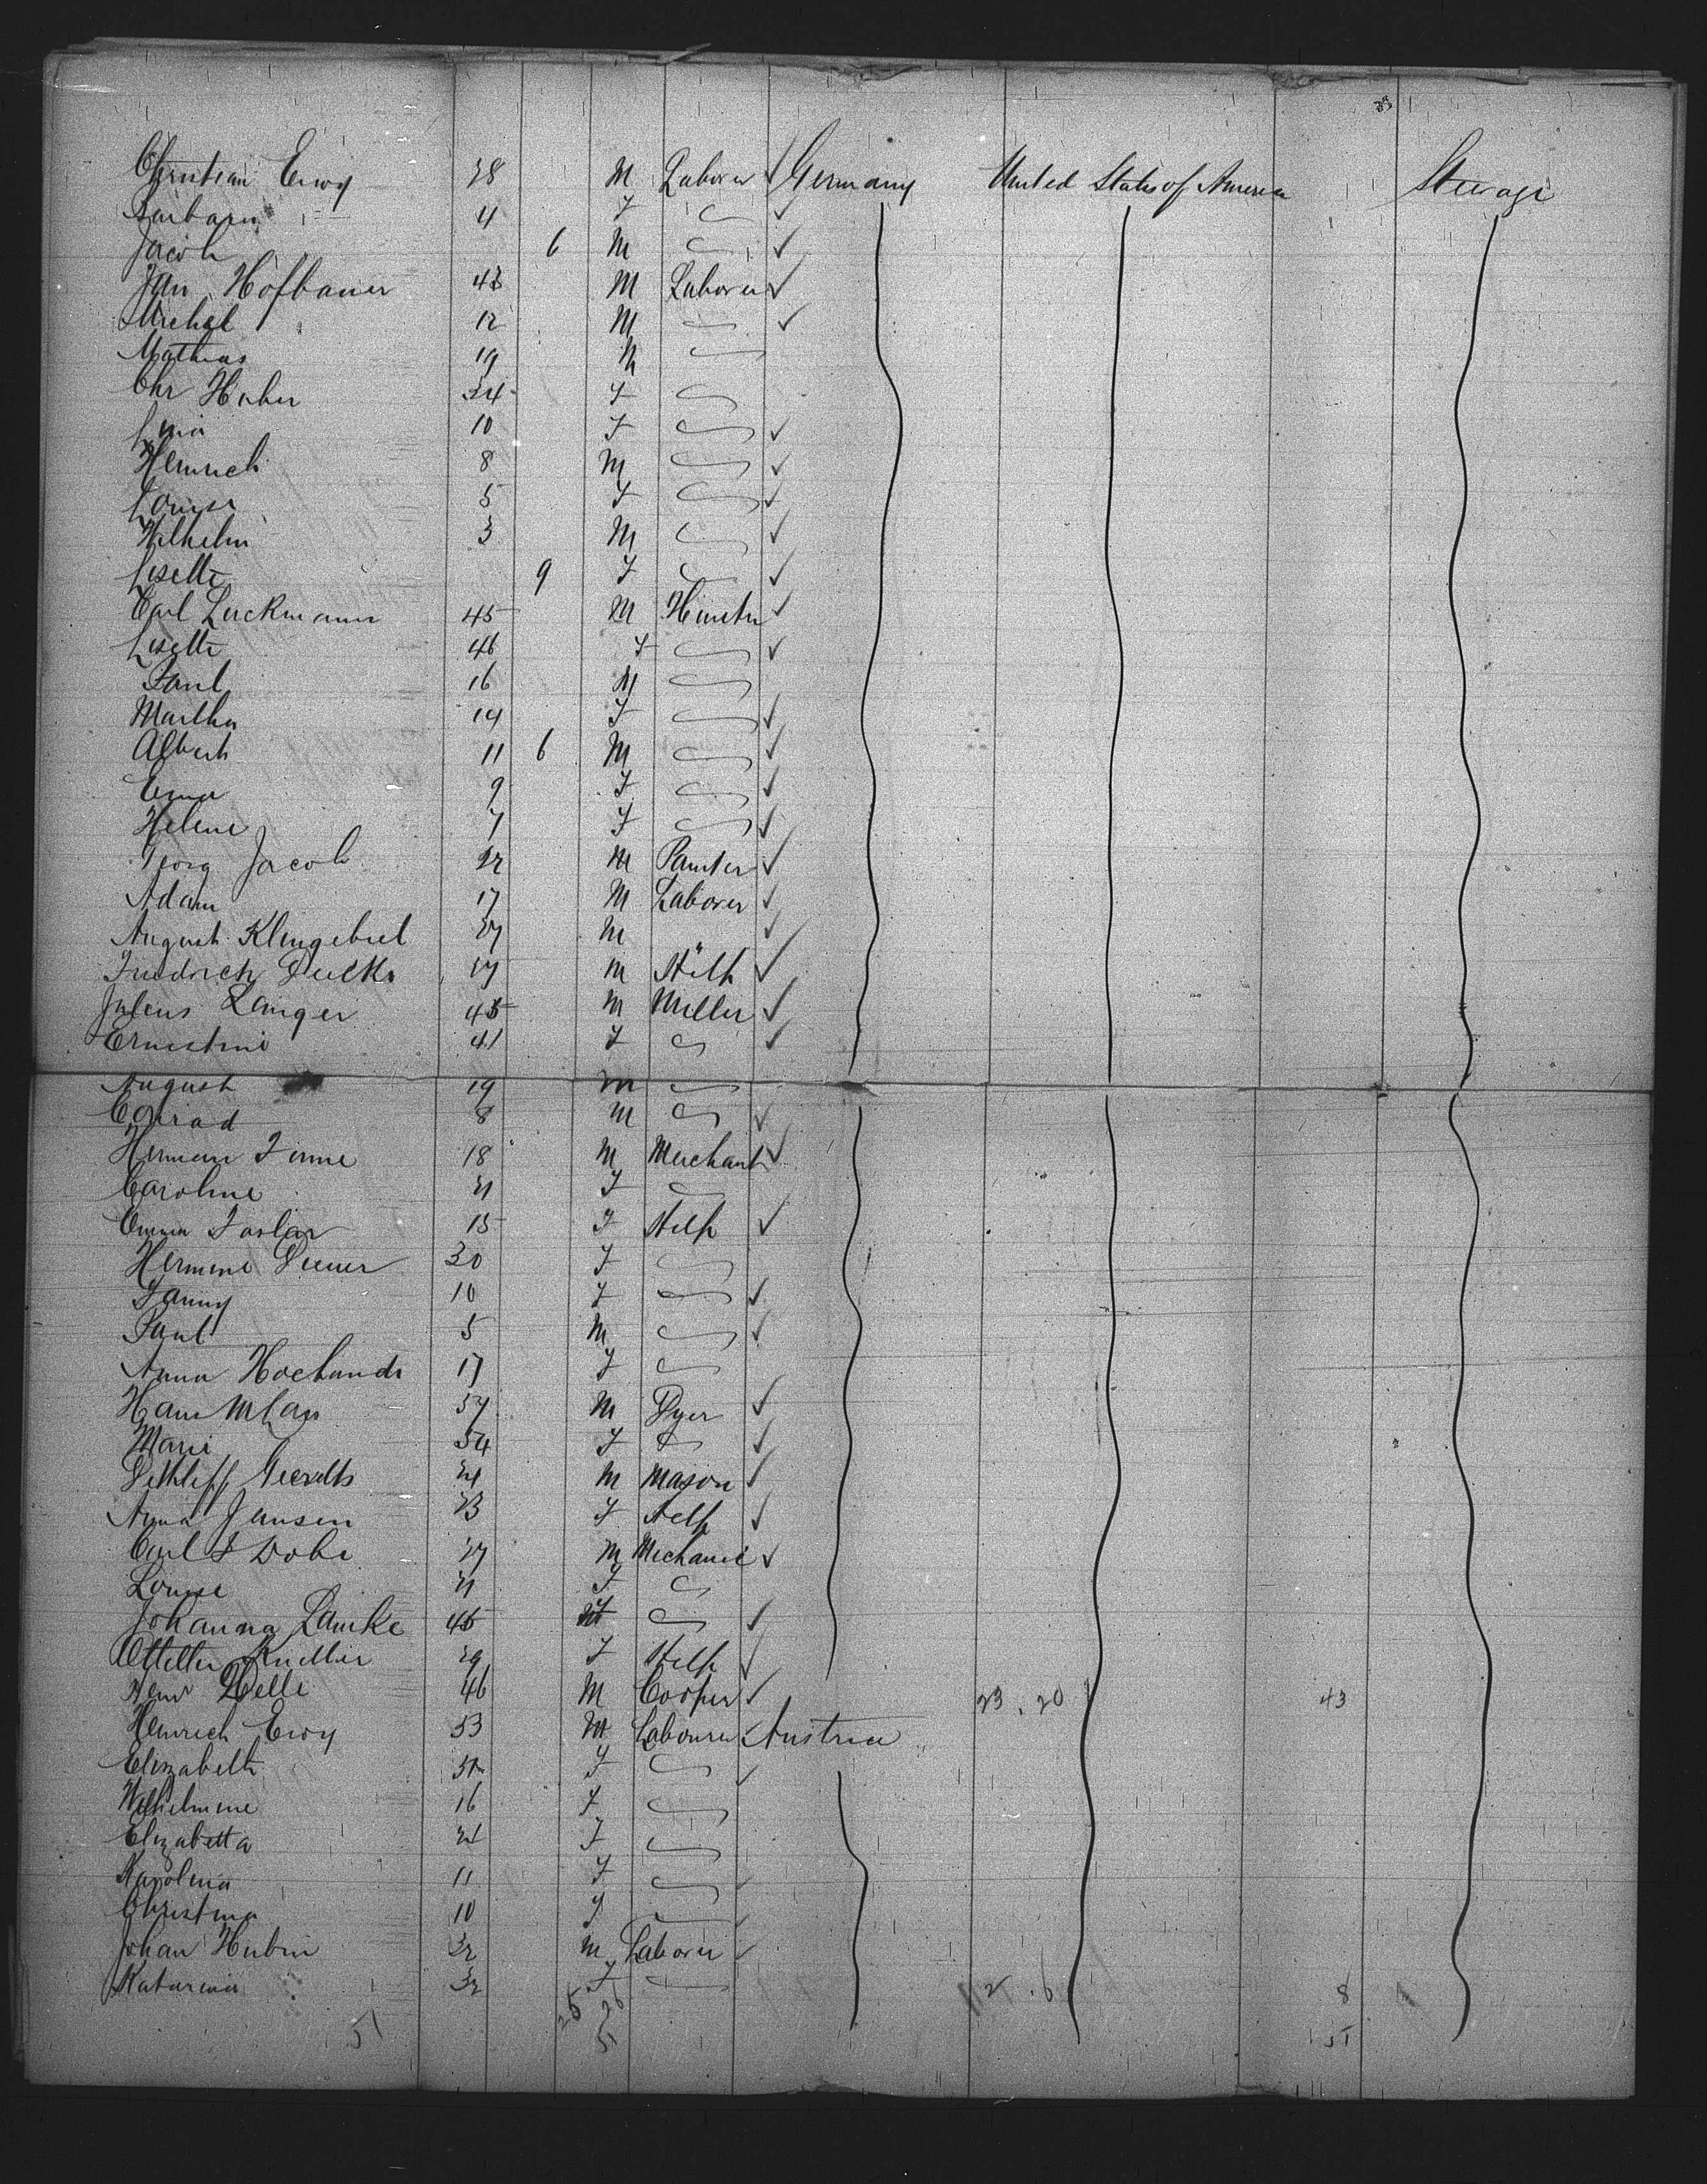 Christian Ewy 28 M Laborer ✓ Germany United States of America Steerage
Barbara 4 F ✓
Jacob 6 M ✓
Jan Hofbauer 43 M Laborer ✓
Michel 12 M ✓
Mathias 19 M
Chr Huber 34 F
Lina 10 F ✓
Heinrich 8 M ✓
Louise 5 F ✓
Wilhelm 3 M ✓
Lisette 9 F ✓
Carl Luckmann 45 M ✓
Lisette 46 F ✓
Paul 16 M
Martha 14 F ✓
Albert 11 6 M ✓
Erna 9 F ✓
Helene 7 F ✓
Georg Jacob 22 M Painter ✓
Adam 17 M Laborer ✓
August Klingebiel 27 M " ✓
Friedrich 17 M Help ✓
Julius Langer 45 M Miller ✓
Ernestine 41 F ✓
August 19 M
Conrad 8 M ✓
Herman 18 M Merchant ✓
Caroline 21 F
Emma 15 F Help ✓
Hermine 30 F
Fanny 10 F ✓
Paul 5 M ✓
Anna 17 F
Hans 57 M Dyer ✓
Marie 54 F ✓
Dethleff 21 M Mason ✓
Anna Jansen 23 F Help ✓
Carl 27 M Mechanic ✓
Louise 21 F
Johanna Lamke 45 F ✓
29 F Help ✓
46 M Cooper ✓ 23 . 20 43
Heinrich Ewy 53 M Labourer ✓ Austria
Elizabeth F ✓
Wilhelmine 16 F
Elizabetta 21 F
Karolina 11 F ✓
Christina 10 F ✓
Johan Hubin 32 M Laborer ✓
Katarina 32 F 2 . 6 8
51 25 26 51 51